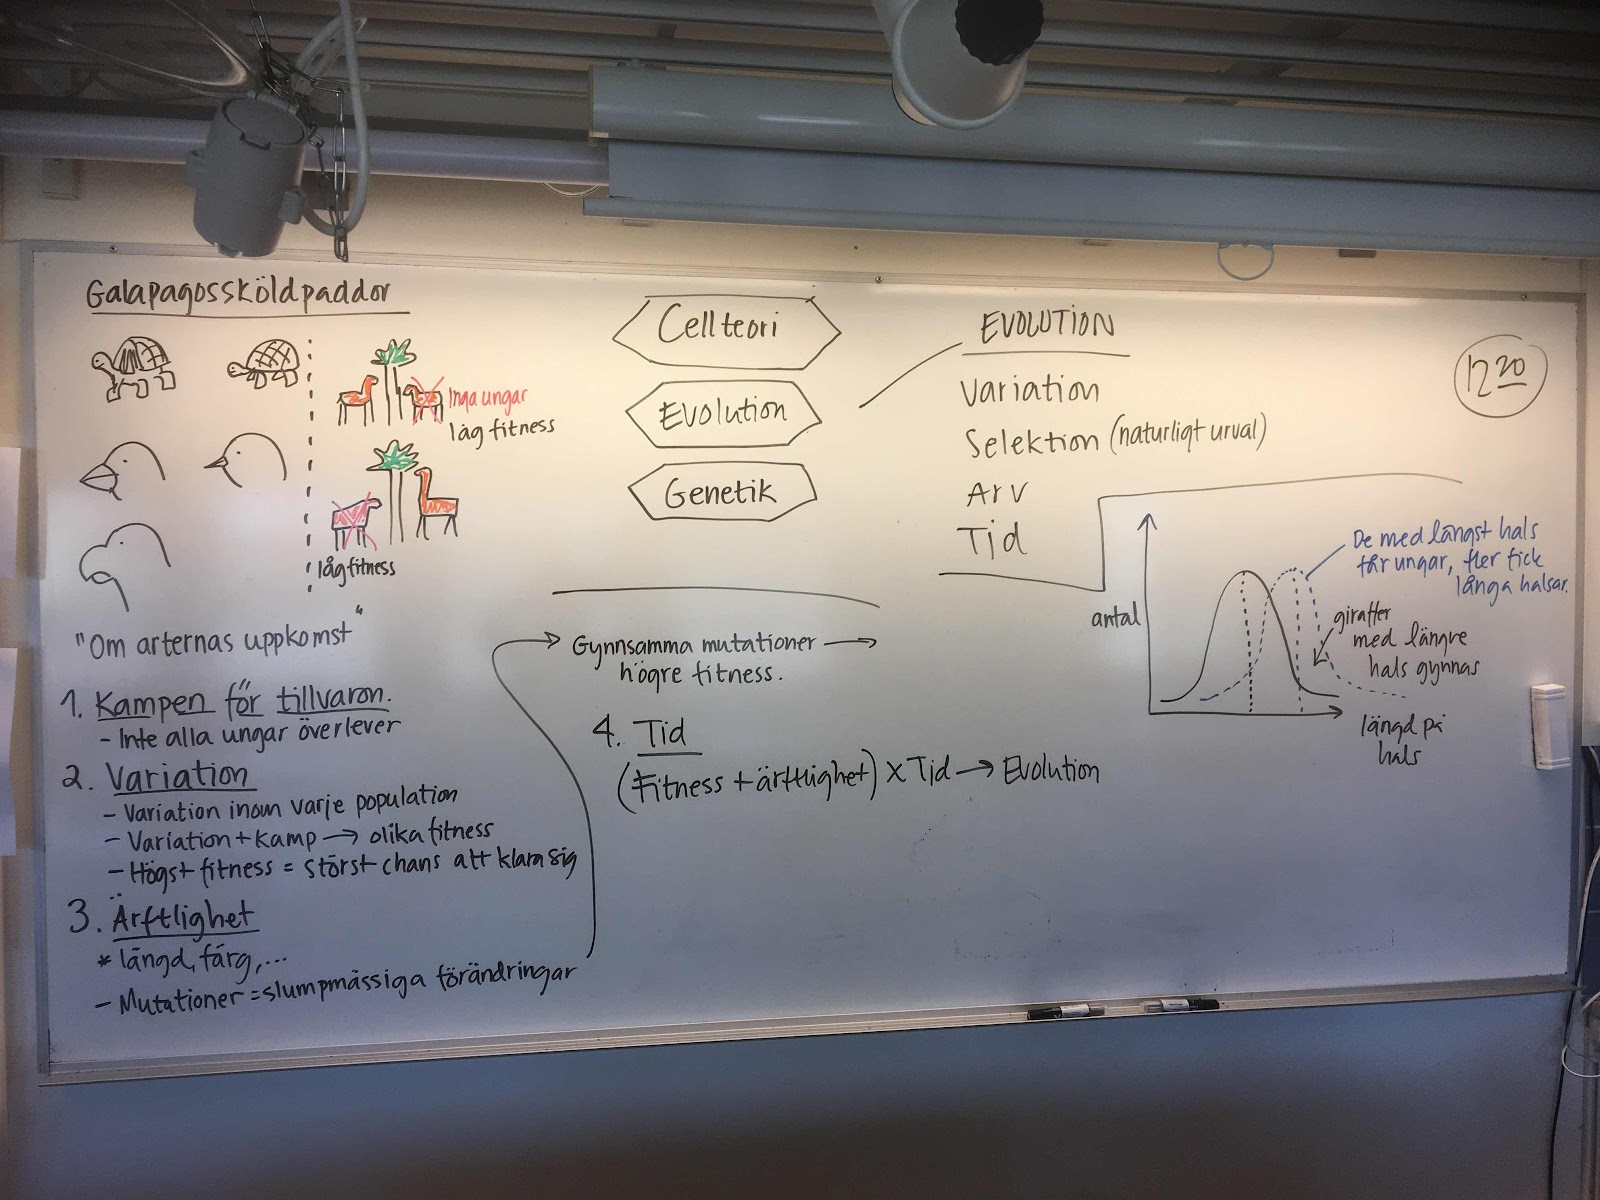 Galapagossköldpaddor
Inga ungar
låg fitness
låg fitness
"Om arternas uppkomst"
1. Kampen för tillvaron.
- Inte alla ungar överlever
2. Variation
- Variation inom varje population
- Variation + kamp → olika fitness
- Högst fitness = störst chans att klara sig
3. Ärftlighet
* längd, färg,...
- Mutationer = slumpmässiga förändringar
Cellteori
Evolution
Genetik
Gynnsamma mutationer →
högre fitness.
4. Tid
(Fitness + ärftlighet) x Tid → Evolution
EVOLUTION
Variation
Selektion (naturligt urval)
Arv
Tid
12 20
antal
De med längst hals
får ungar, fler fick
långa halsar.
giraffer
med längre
hals gynnas
längd på
hals